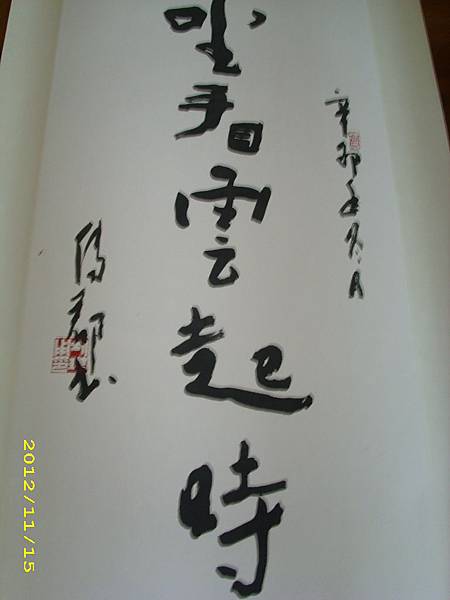 辛卯年冬月
坐看雲起時
2012/11/15